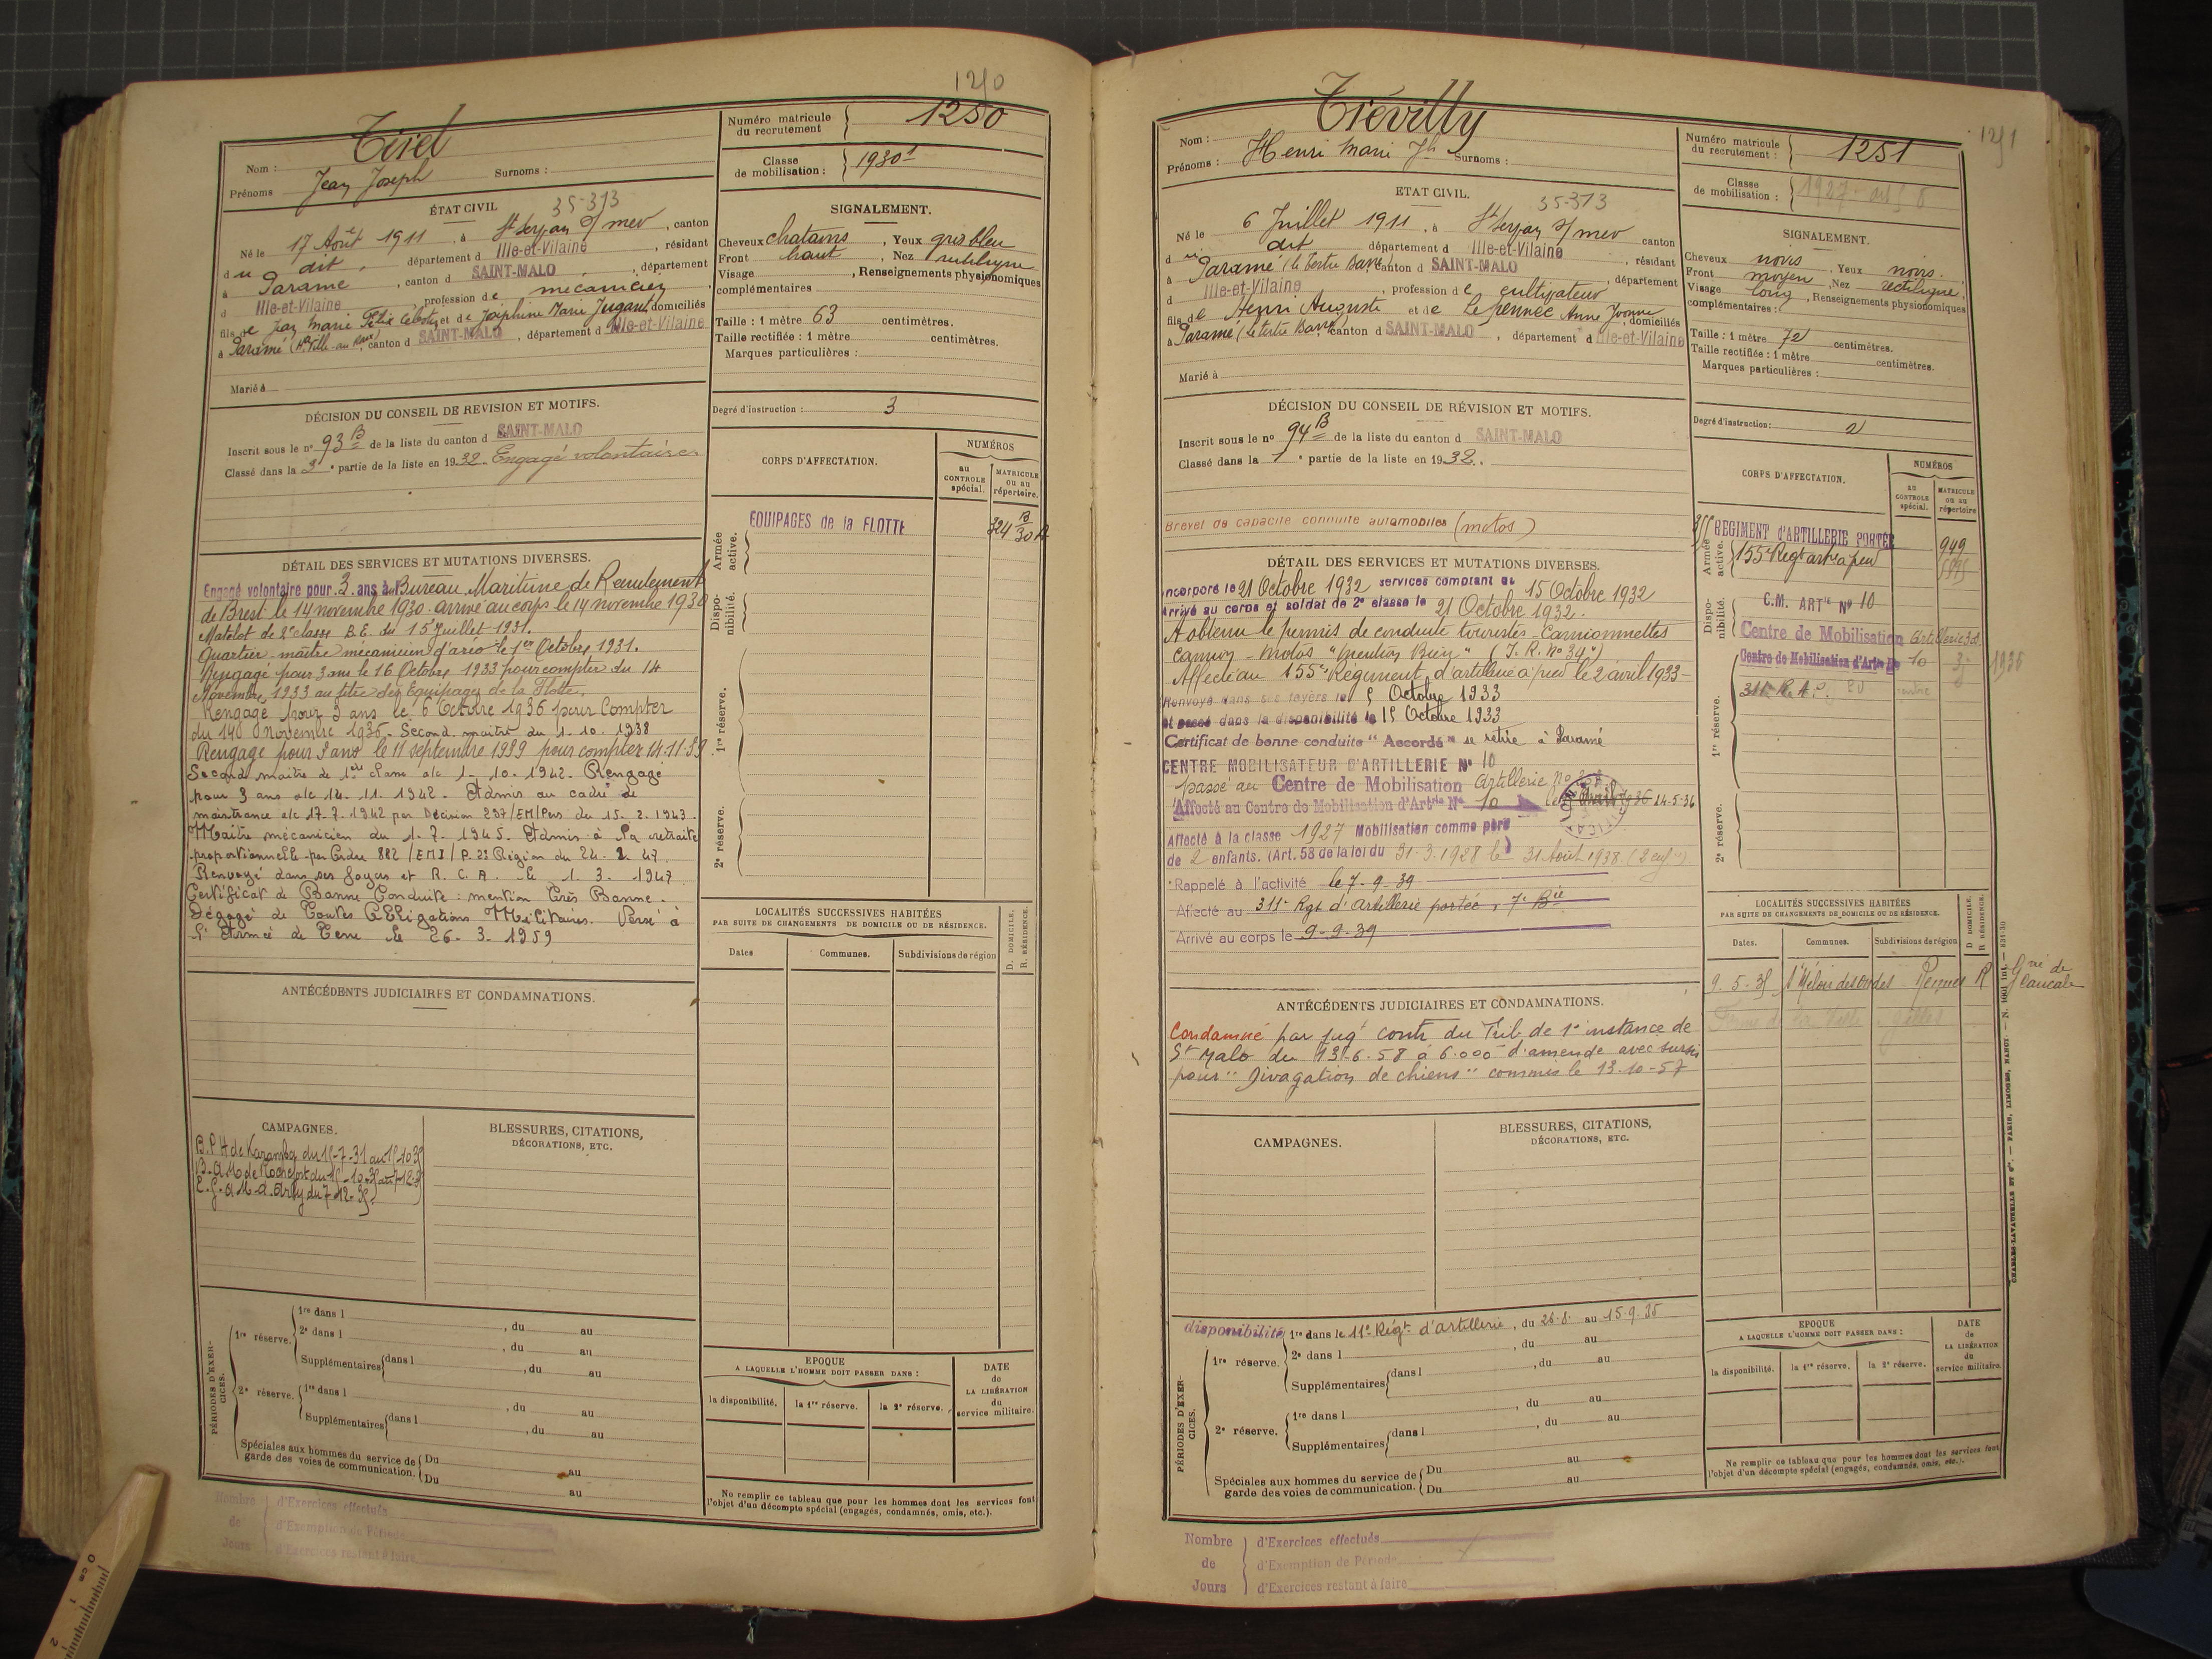 1250
Nom : Tirel
Prénoms Jean Joseph Surnoms :
Numéro matricule du recrutement 1250
Classe de mobilisation : 1930
ÉTAT CIVIL 35-313
Né le 17 Août 1911, à St Servan s/mer, canton
du dit, département d Ille-et-Vilaine, résidant
à Paramé, canton d SAINT-MALO, département
d Ille-et-Vilaine, profession de mécanicien
fils de Jean Marie Félix et de Joséphine Marie Jugant domiciliés
à Paramé, canton d SAINT-MALO, département d Ille-et-Vilaine
Marié à
SIGNALEMENT.
Cheveux chatains, Yeux gris bleu
Front haut, Nez rectiligne
Visage , Renseignements physionomiques
complémentaires
Taille : 1 mètre 63 centimètres.
Taille rectifiée : 1 mètre centimètres.
Marques particulières :
DÉCISION DU CONSEIL DE REVISION ET MOTIFS.
Inscrit sous le no 93 B de la liste du canton d SAINT-MALO
Classé dans la 3e partie de la liste en 1932. Engagé volontaire
Degré d'instruction : 3
CORPS D'AFFECTATION.
NUMÉROS
au CONTROLE spécial.
MATRICULE ou au répertoire.
Armée active.
EQUIPAGES de la FLOTTE
Disponibilité.
1re réserve.
2e réserve.
DÉTAIL DES SERVICES ET MUTATIONS DIVERSES.
Engagé volontaire pour 3 ans au Bureau Maritime de Recrutement
de Brest le 14 novembre 1930. arrivé au corps le 14 novembre 1930
Matelot de 2e classe B.E. du 15 Juillet 1931.
Quartier-maître mécanicien d'aéro le 1er Octobre 1931.
Rengagé pour 3 ans le 16 Octobre 1933 pour compter du 14
Novembre 1933 au titre des Equipages de la Flotte.
Rengagé pour 3 ans le 6 Octobre 1936 pour compter
du 14 Novembre 1936. Second maître du 1-10-1938
Rengagé pour 3 ans le 11 septembre 1939 pour compter 14.11.39
Second maître de 1ère classe a/c 1-10-1942. Rengagé
pour 3 ans a/c 14-11-1942. Admis au cadre de
maistrance a/c 17-7-1942 par Décision 297/EM/Pers du 15.2.1943.
Maître mécanicien du 1.7.1945. Admis à la retraite
proportionnelle par Ordre 882/EM3/P. 2e Région du 24.2.47.
Renvoyé dans ses foyers et R.C.A. le 1.3.1947
Certificat de Bonne Conduite : mention Très Bonne.
Dégagé de Toutes Obligations Militaires. Versé à
l'Armée de Terre le 26-3-1959
ANTÉCÉDENTS JUDICIAIRES ET CONDAMNATIONS.
LOCALITÉS SUCCESSIVES HABITÉES
PAR SUITE DE CHANGEMENTS DE DOMICILE OU DE RÉSIDENCE.
Dates Communes. Subdivisions de région
D. DOMICILE. R. RÉSIDENCE.
CAMPAGNES.
BLESSURES, CITATIONS, DÉCORATIONS, ETC.
PÉRIODES D'EXERCICES.
1re réserve.
1re dans l , du au
2e dans l , du au
Supplémentaires dans l , du au
2e réserve.
1re dans l , du au
Supplémentaires dans l , du au
Spéciales aux hommes du service de garde des voies de communication.
Du au
Du au
EPOQUE
A LAQUELLE L'HOMME DOIT PASSER DANS :
la disponibilité. la 1re réserve. la 2e réserve.
DATE de LA LIBÉRATION du service militaire.
Ne remplir ce tableau que pour les hommes dont les services font
l'objet d'un décompte spécial (engagés, condamnés, omis, etc.).
Nombre de Jours
d'Exercices effectués
d'Exemption de Période
d'Exercices restant à faire
1251
Nom : Triévilly
Prénoms : Henri Marie Jh Surnoms :
Numéro matricule du recrutement : 1251
Classe de mobilisation : 1927
ETAT CIVIL. 35-313
Né le 6 Juillet 1911, à St Servan s/mer canton
du dit département d Ille-et-Vilaine, résidant
à Paramé (le Tertre Barré) canton d SAINT-MALO, département
d Ille-et-Vilaine, profession de cultivateur
fils de Henri Auguste et de Le pennec Anne Yvonne, domiciliés
à Paramé (le tertre Barré) canton d SAINT-MALO, département d Ille-et-Vilaine
Marié à
SIGNALEMENT.
Cheveux noirs, Yeux noirs.
Front moyen, Nez rectiligne,
Visage long, Renseignements physionomiques
complémentaires :
Taille : 1 mètre 72 centimètres.
Taille rectifiée : 1 mètre centimètres.
Marques particulières :
DÉCISION DU CONSEIL DE RÉVISION ET MOTIFS.
Inscrit sous le no 94 B de la liste du canton d SAINT-MALO
Classé dans la 1e partie de la liste en 1932.
Degré d'instruction : 2
Brevet de capacité conduite automobiles (motos)
CORPS D'AFFECTATION.
NUMÉROS
au CONTROLE spécial.
MATRICULE ou au répertoire
Armée active.
REGIMENT d'ARTILLERIE PORTÉE 949
155e Regt artie à pied
Disponibilité.
C.M. ARTie No 10
Centre de Mobilisation Artillerie
Centre de Mobilisation d'Artie No 10
1re réserve.
311e R.A.P.
2e réserve.
DÉTAIL DES SERVICES ET MUTATIONS DIVERSES.
Incorporé le 21 Octobre 1932 services comptant du 15 Octobre 1932
Arrivé au corps et soldat de 2e classe le 21 Octobre 1932.
A obtenu le permis de conduire touristes - Camionnettes
camion - motos "mention Bien" (I.R. No 34)
Affecté au 155e Régiment d'artillerie à pied le 2 avril 1933
Renvoyé dans ses foyers le 15 Octobre 1933
et passé dans la disponibilité le 15 Octobre 1933
Certificat de bonne conduite "Accordé" se retire à Paramé
CENTRE MOBILISATEUR D'ARTILLERIE No 10
passé au Centre de Mobilisation Artillerie
Affecté au Centre de Mobilisation d'Artie No 10 14-5-36
Affecté à la classe 1927 Mobilisation comme père
de 2 enfants. (Art. 58 de la loi du 31-3-1928 le 31 Août 1938
Rappelé à l'activité le 7-9-39
Affecté au 311e Rgt d'Artillerie portée, 7e Bie
Arrivé au corps le 9-9-39
ANTÉCÉDENTS JUDICIAIRES ET CONDAMNATIONS.
Condamné par jugt contr du Trib de 1e instance de
St Malo du 13-6-58 à 6.000 d'amende avec sursis
pour "Divagation de chiens" commis le 13-10-57
LOCALITÉS SUCCESSIVES HABITÉES
PAR SUITE DE CHANGEMENTS DE DOMICILE OU DE RÉSIDENCE.
Dates. Communes. Subdivisions de région
D DOMICILE. R RÉSIDENCE.
9-5-35 St Méloir des Ondes Rennes R
CAMPAGNES.
BLESSURES, CITATIONS, DÉCORATIONS, ETC.
PÉRIODES D'EXERCICES.
disponibilité 1re dans le 11e Régt d'artillerie, du 26.8. au 15.9.35
1re réserve.
2e dans l , du au
Supplémentaires dans l , du au
2e réserve.
1re dans l , du au
Supplémentaires dans l , du au
Spéciales aux hommes du service de garde des voies de communication.
Du au
Du au
EPOQUE
A LAQUELLE L'HOMME DOIT PASSER DANS :
la disponibilité. la 1re réserve. la 2e réserve.
DATE de LA LIBÉRATION du service militaire.
Ne remplir ce tableau que pour les hommes dont les services font
l'objet d'un décompte spécial (engagés, condamnés, omis, etc.).
CHARLES-LAVAUZELLE ET Cie. — PARIS, LIMOGES, NANCY
Nombre de Jours
d'Exercices effectués
d'Exemption de Période
d'Exercices restant à faire
0 cm 1 2